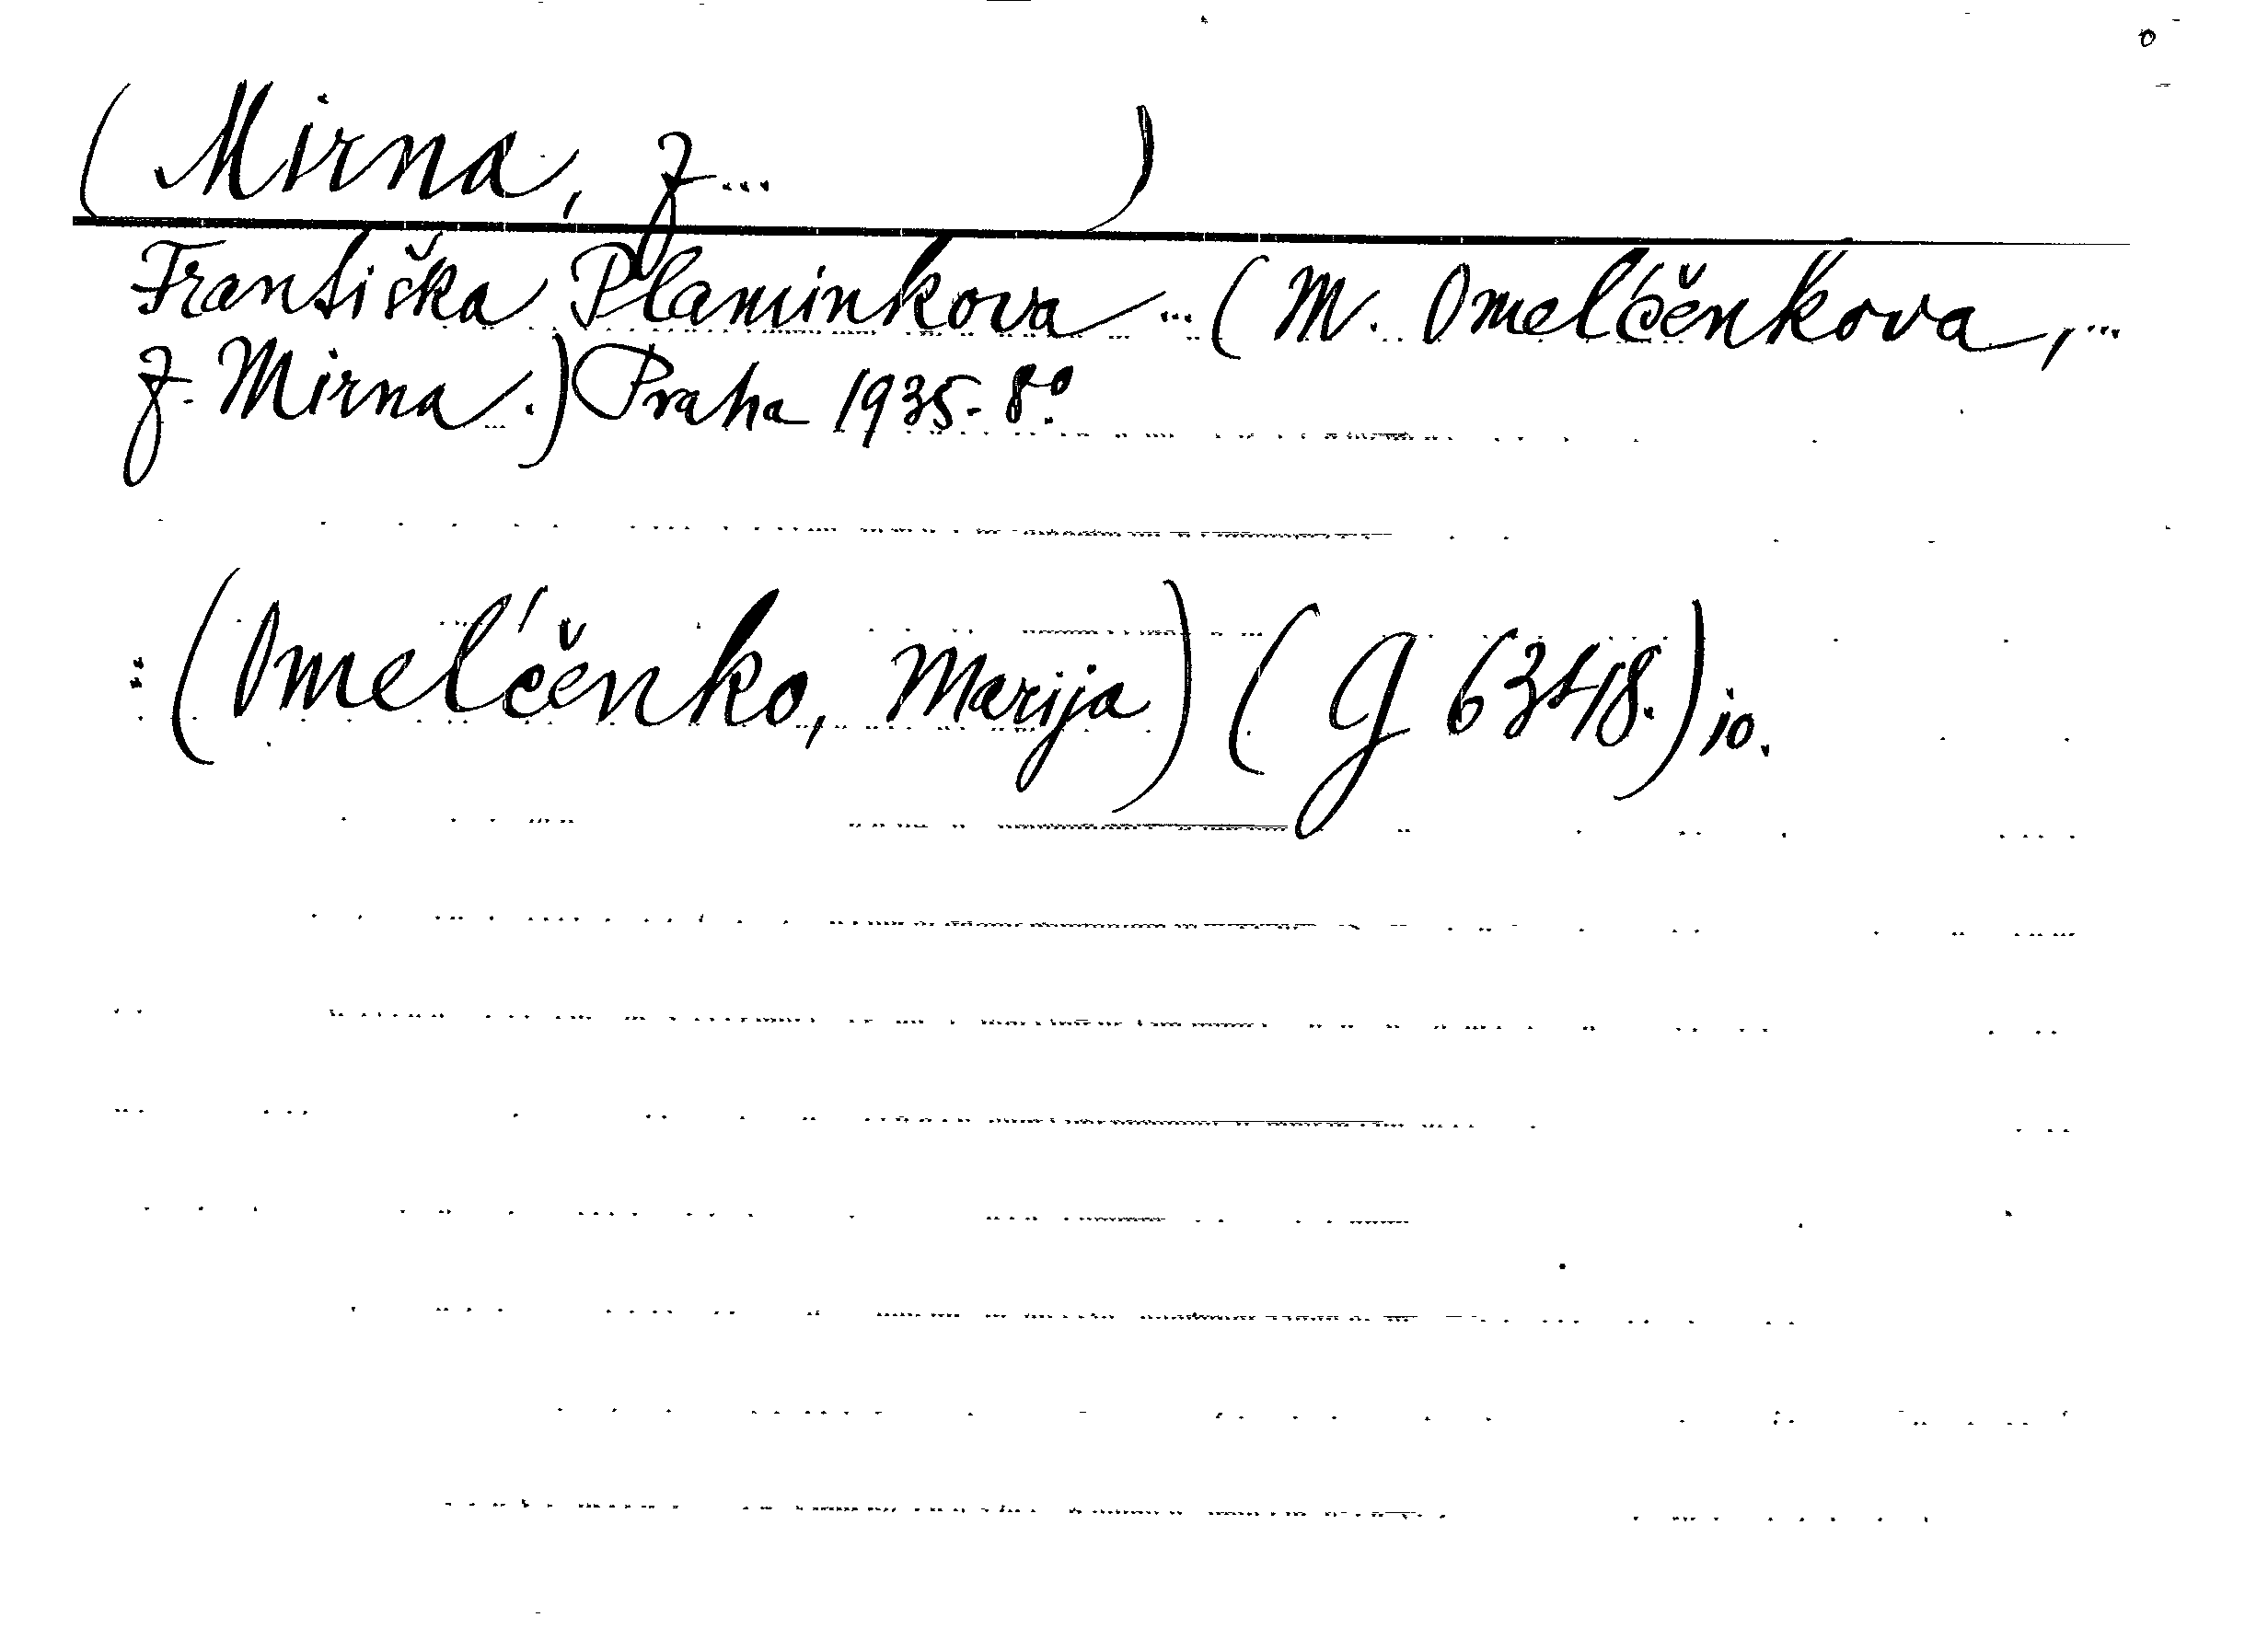 (Mirna, Z... )
Františka Plaminkova ... (M. Omel'čenkova, ...
Z. Mirna.) Praha 1935. 8°.
: (Omel'čenko, Marija) (G 6348.) io.